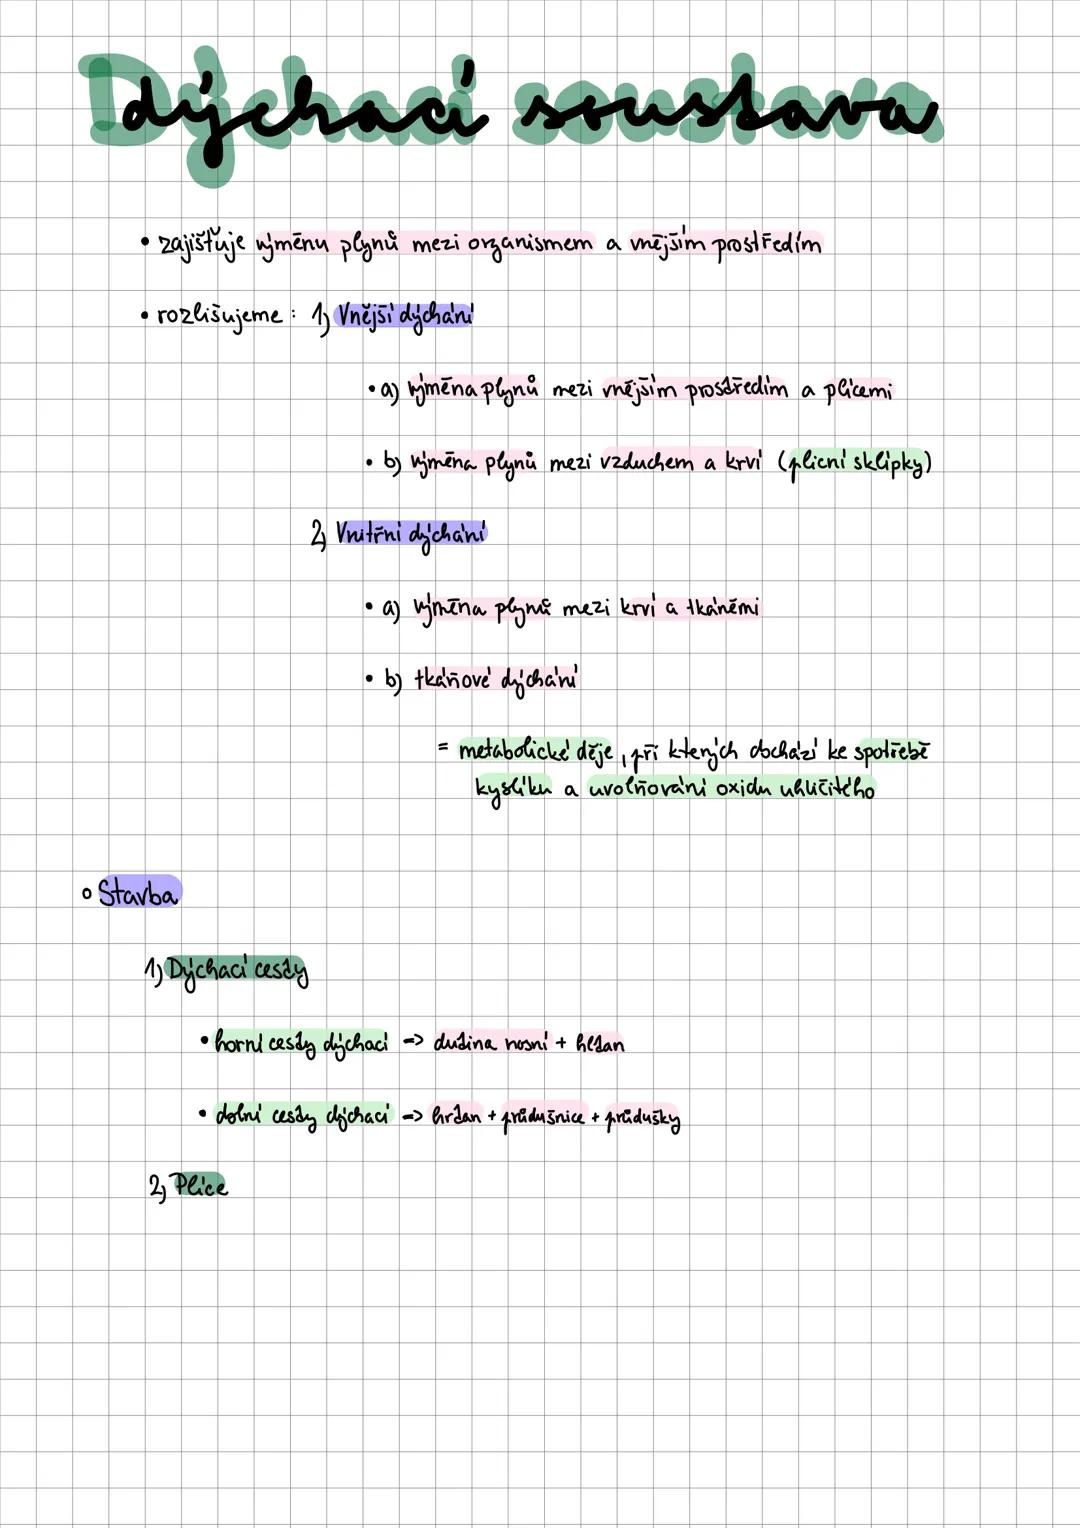 Dýchací soustava
• zajišťuje výměnu plynů mezi organismem a vnějším prostředím
• rozlišujeme : 1) Vnější dýchání
• a) výměna plynů mezi vnějším prostředím a plícemi
• b) výměna plynů mezi vzduchem a krví (plicní sklípky)
2) Vnitřní dýchání
• a) výměna plynů mezi krví a tkáněmi
• b) tkáňové dýchání
= metabolické děje, při kterých dochází ke spotřebě
kyslíku a uvolňování oxidu uhličitého
○ Stavba
1) Dýchací cesty
• horní cesty dýchací => dutina nosní + hltan
• dolní cesty dýchací => hrtan + průdušnice + průdušky
2) Plíce